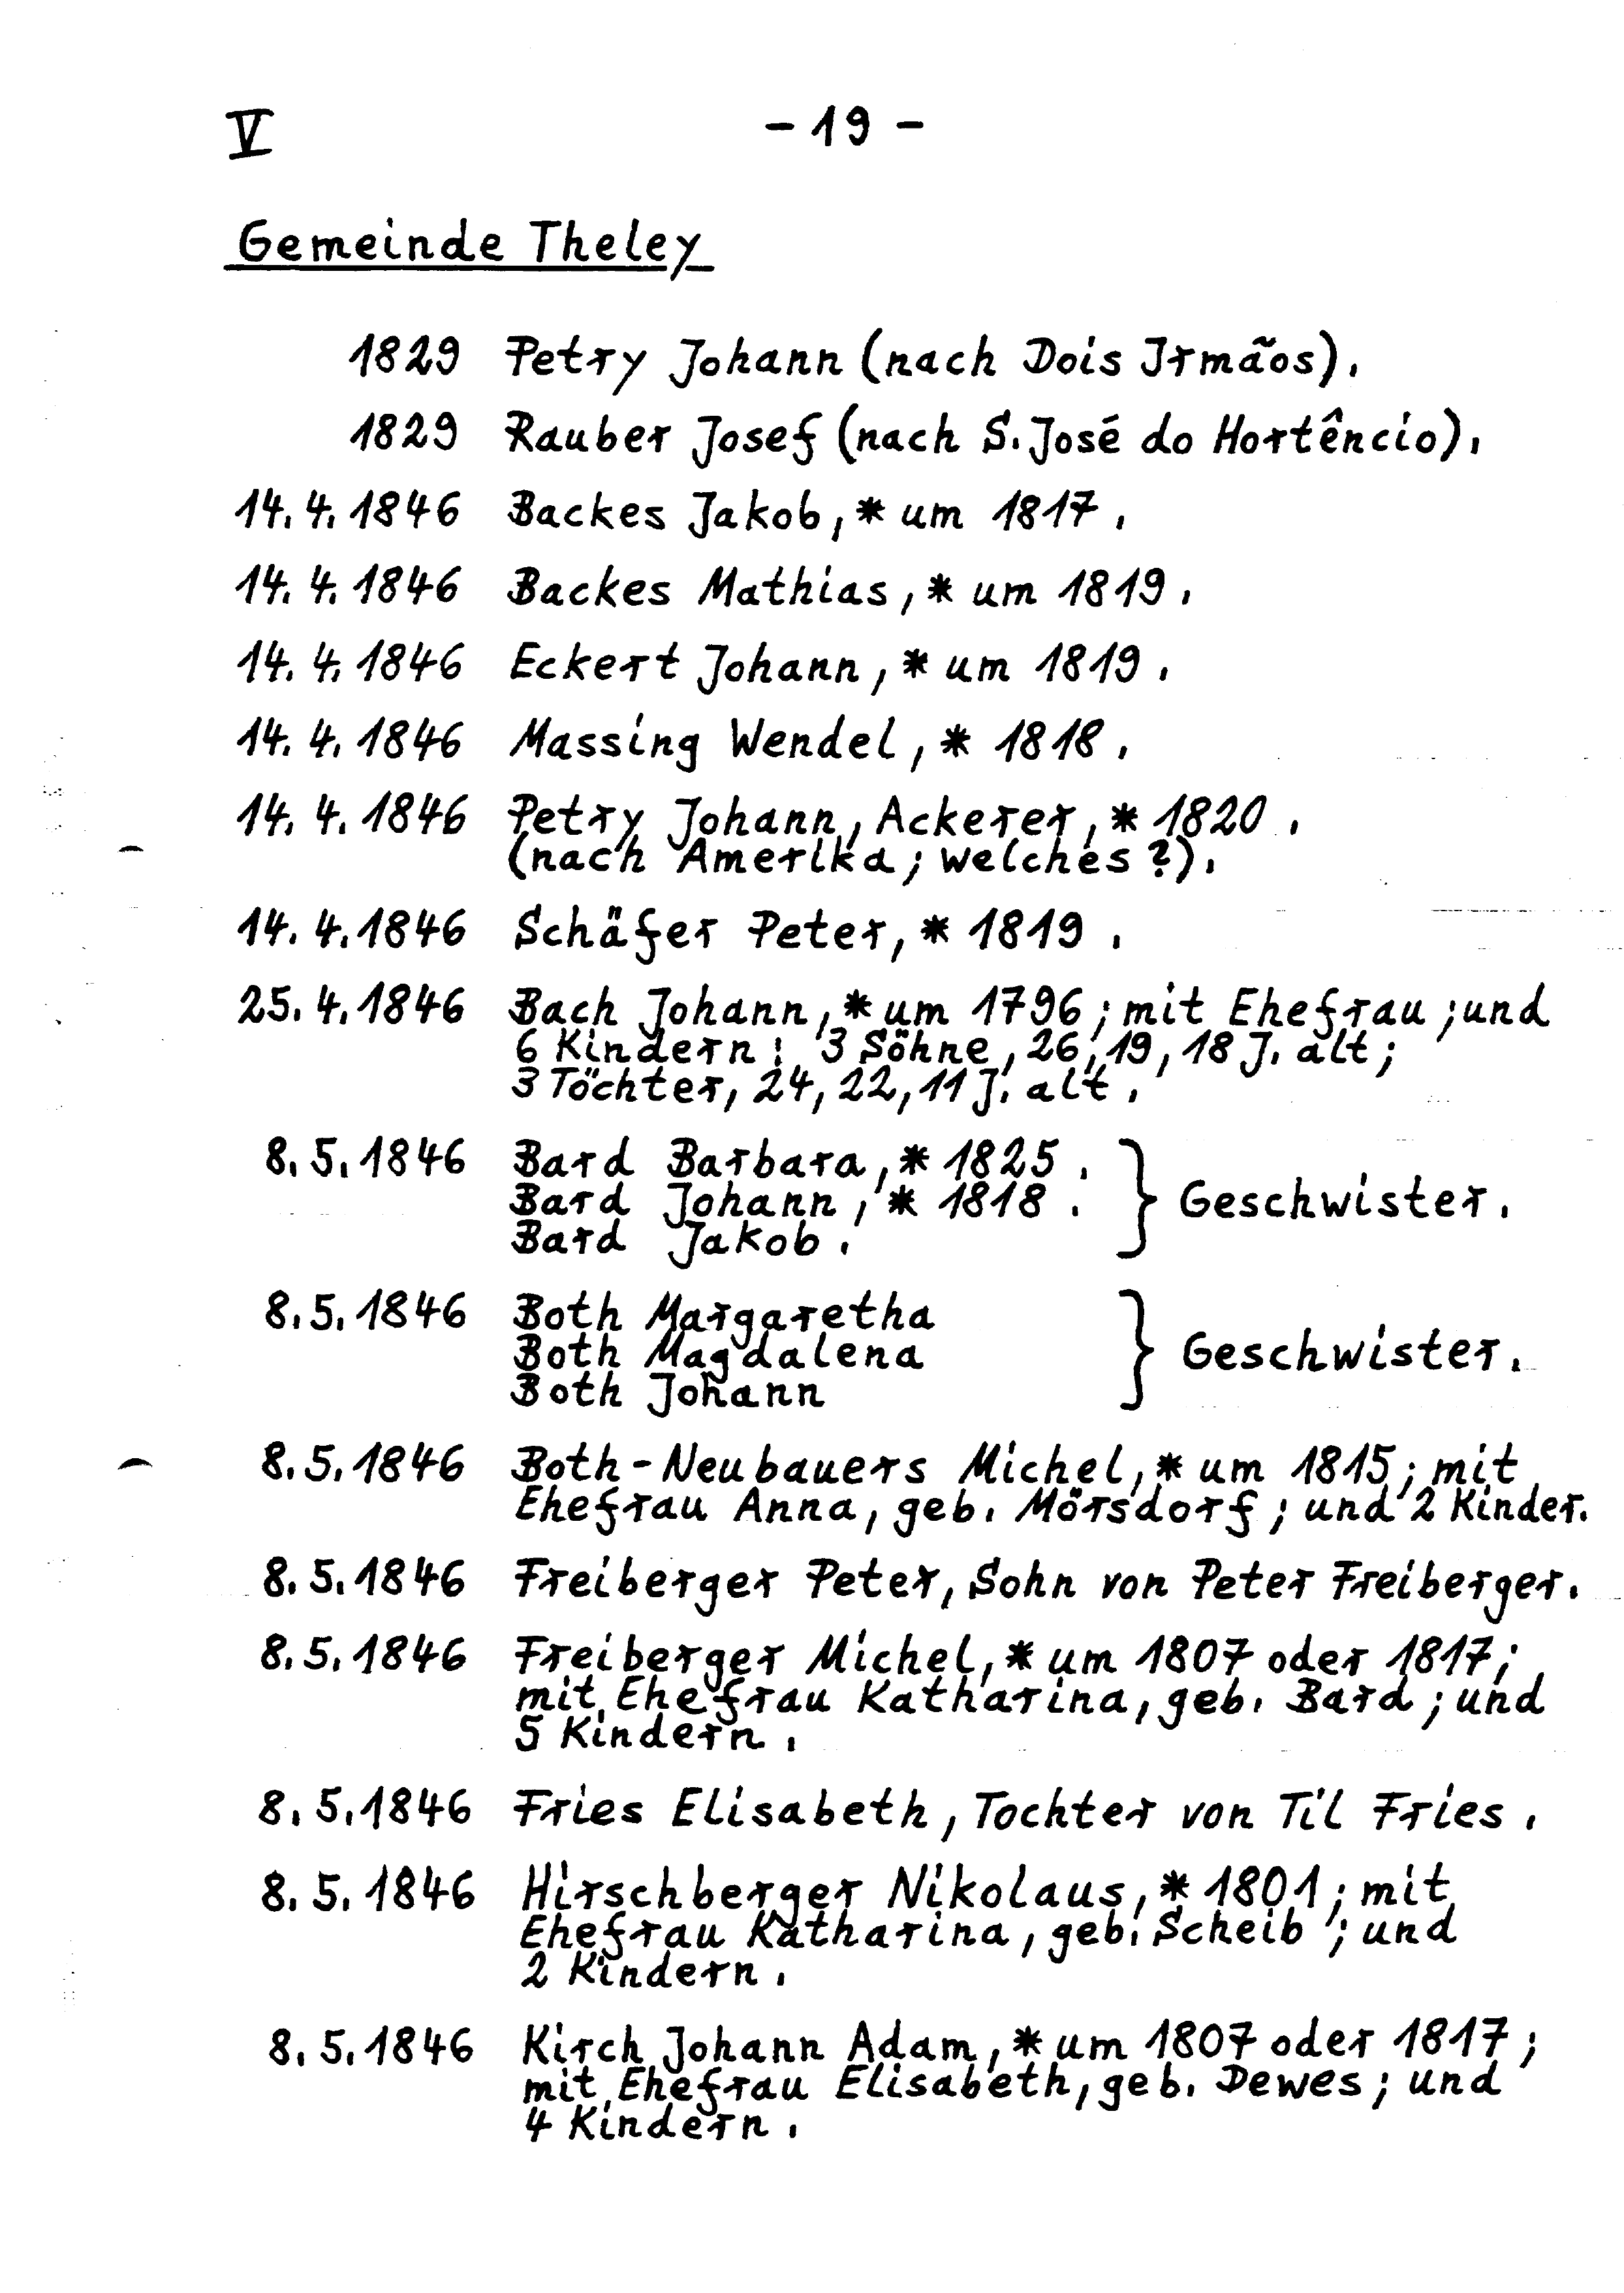 V - 19 -
Gemeinde Theley
1829 Petry Johann (nach Dois Irmãos).
1829 Rauber Josef (nach S. José do Hortêncio).
14. 4. 1846 Backes Jakob, * um 1817.
14. 4. 1846 Backes Mathias, * um 1819.
14. 4. 1846 Eckert Johann, * um 1819.
14. 4. 1846 Massing Wendel, * 1818.
14. 4. 1846 Petry Johann, Ackerer, * 1820.
(nach Amerika; welches?).
14. 4. 1846 Schäfer Peter, * 1819.
25. 4. 1846 Bach Johann, * um 1796; mit Ehefrau; und
6 Kindern: 3 Söhne, 26, 19, 18 J. alt;
3 Töchter, 24, 22, 11 J. alt.
8. 5. 1846 Bard Barbara, * 1825.
Bard Johann, * 1818. } Geschwister.
Bard Jakob.
8. 5. 1846 Both Margaretha
Both Magdalena } Geschwister.
Both Johann
8. 5. 1846 Both-Neubauers Michel, * um 1815; mit
Ehefrau Anna, geb. Mörsdorf; und 2 Kinder.
8. 5. 1846 Freiberger Peter, Sohn von Peter Freiberger.
8. 5. 1846 Freiberger Michel, * um 1807 oder 1817;
mit Ehefrau Katharina, geb. Bard; und
5 Kindern.
8. 5. 1846 Fries Elisabeth, Tochter von Til Fries.
8. 5. 1846 Hirschberger Nikolaus, * 1801; mit
Ehefrau Katharina, geb. Scheib; und
2 Kindern.
8. 5. 1846 Kirch Johann Adam, * um 1807 oder 1817;
mit Ehefrau Elisabeth, geb. Dewes; und
4 Kindern.